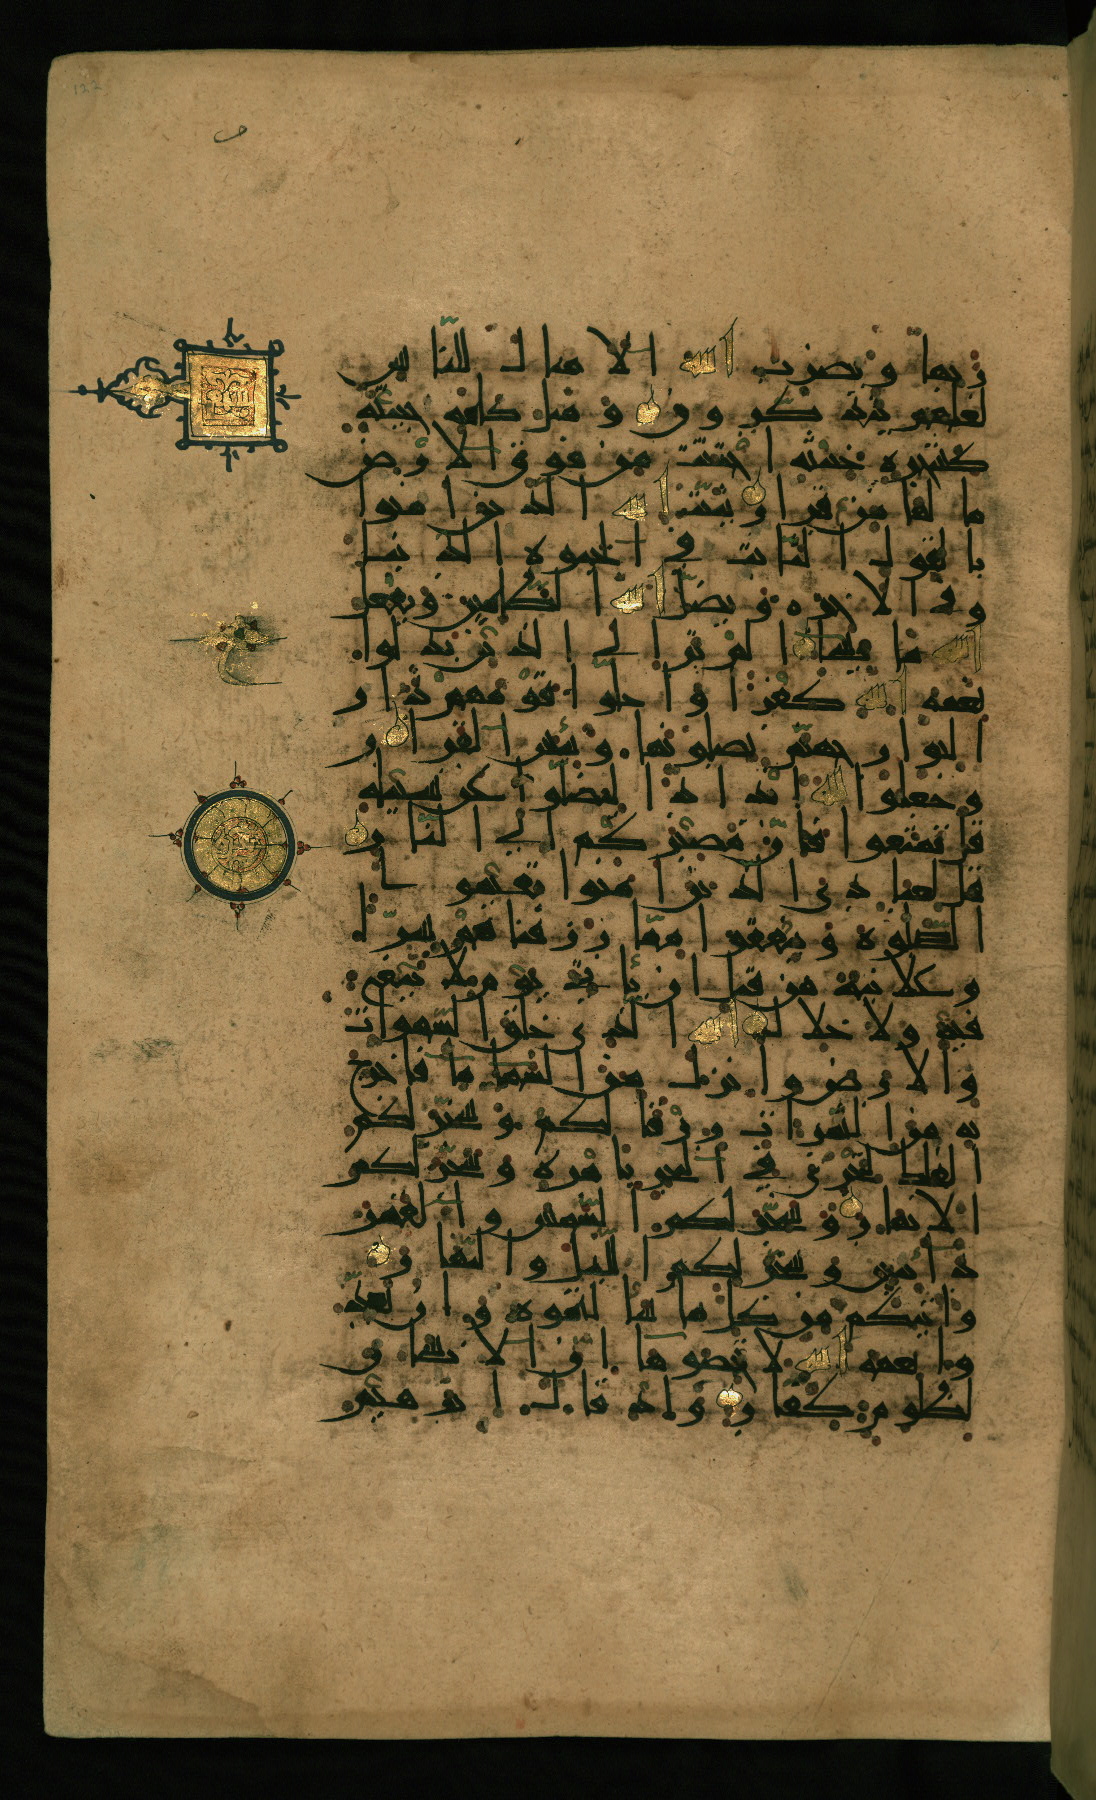 122
ربها ويضرب الله الامثال للناس
لعلهم يتذكرون ومثل كلمة خبيثة
كشجرة خبيثة اجتثت من فوق الارض
ما لها من قرار يثبت الله الذين امنوا
بالقول الثابت في الحيوة الدنيا
وفي الاخرة ويضل الله الظالمين ويفعل
الله ما يشاء الم تر الى الذين بدلوا
نعمة الله كفرا واحلوا قومهم دار
البوار جهنم يصلونها وبئس القرار
وجعلوا لله اندادا ليضلوا عن سبيله
قل تمتعوا فان مصيركم الى النار
قل لعبادي الذين امنوا يقيموا
الصلوة وينفقوا مما رزقناهم سرا
وعلانية من قبل ان ياتي يوم لا بيع
فيه ولا خلال الله الذي خلق السموات
والارض وانزل من السماء ماء فاخرج
به من الثمرات رزقا لكم وسخر لكم
الفلك لتجري في البحر بامره وسخر لكم
الانهار وسخر لكم الشمس والقمر
دائبين وسخر لكم الليل والنهار
واتيكم من كل ما سالتموه وان تعد
وا نعمة الله لا تحصوها ان الانسان
لظلوم كفار واذ قال ابرهيم